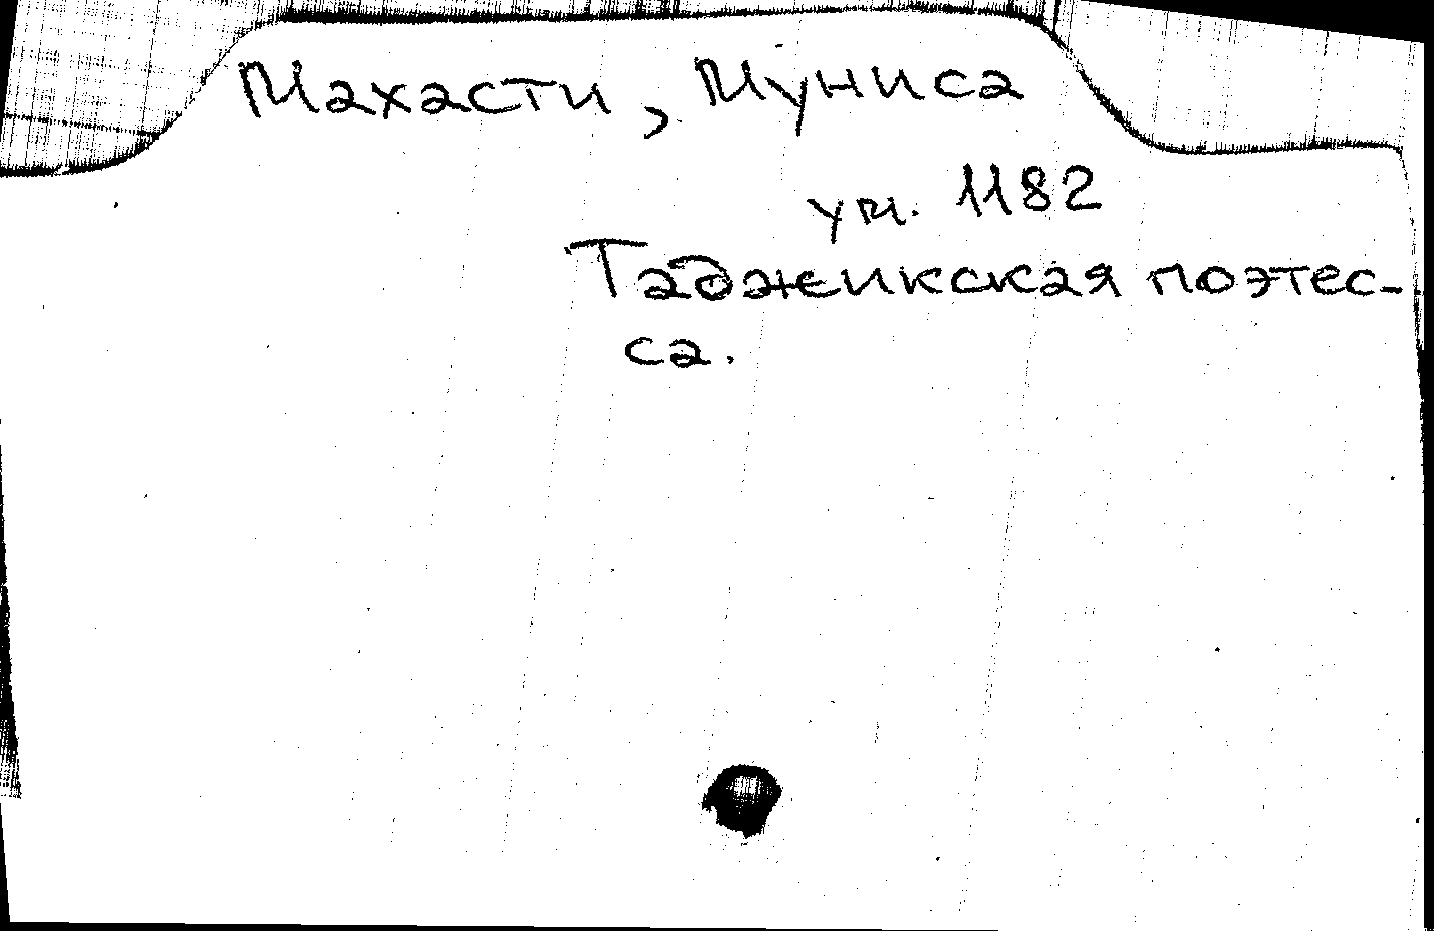 Махасти, Муниса
ум. 1182
Таджикская поэтес-
са.